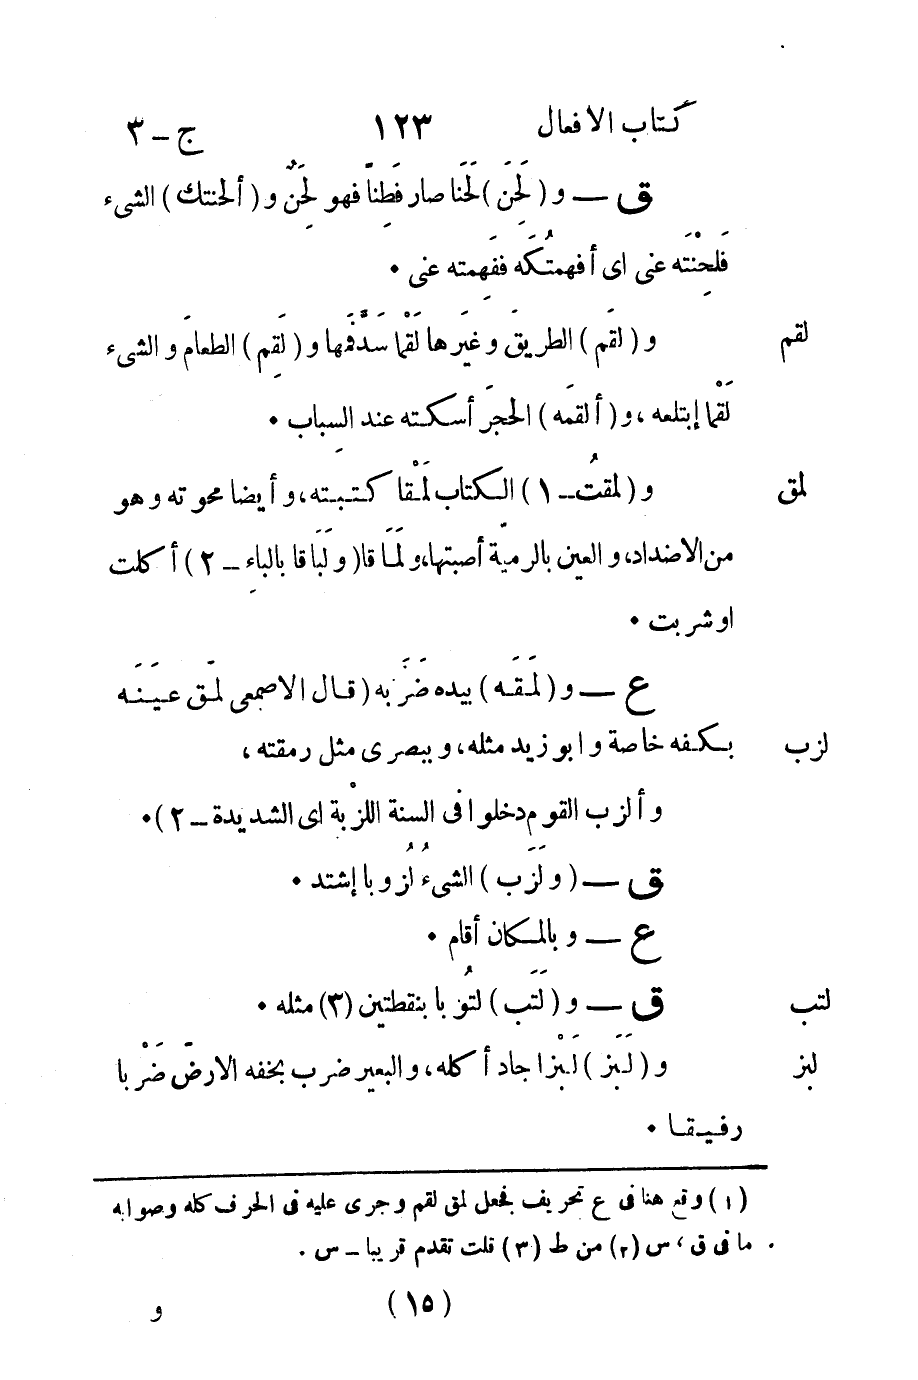 كتاب الافعال ١٢٣ ج – ٣
ق — و ( لَحِنَ ) لَحَنا صار فَطِناً فهو لَحِنٌ و ( ألحنتك ) الشىء
فَلَحِنْتَه عنى اى أفهمتُكَه ففَهِمته عنى •
لقم و ( لقَم ) الطريقَ وغيَرها لَقْما سَدَّفَمها و ( لَقِم ) الطعامَ و الشىء
لَقْما إبتلعه ، و ( ألقمَه ) الحجَرَ أسكته عند السِباب •
لمق و ( لمقتُ – ١ ) الكتاب لَمْقا كتبته، و أيضا محوته وهو
من الاضداد، و العين بالرميّة أصبتها، و لَمَاقا ( و لَبَاقا بالباء – ٢ ) أكلت
او شربت •
ع — و ( لَمَقَه ) بيده ضَرَبه ( قال الاصمعى لمَق عيَنَه
لزب بكفه خاصة و ابو زيد مثله، و ببصرى مثل رمقته ،
و ألزب القوم دخلوا فى السنة اللزْبة اى الشديدة – ٢ ) •
ق — ( و لَزَب ) الشىءُ لُزوبا إشتد •
ع — و بالمكان أقام •
لتب ق — و ( لَتَب ) لتُوبا بنقطتين (٣) مثله •
لبز و ( لَبَز ) لَبْزا جاد أكله، و البعير ضرب بخفه الارضَ ضَرْبا
رفيقا •
(١) وقع هنا فى ع تحريف فجعل لمق لقم وجرى عليه فى الحرف كله وصوابه
ما فى ق ، س (٢) من ط (٣) قلت تقدم قريبا – س .
(١٥) و